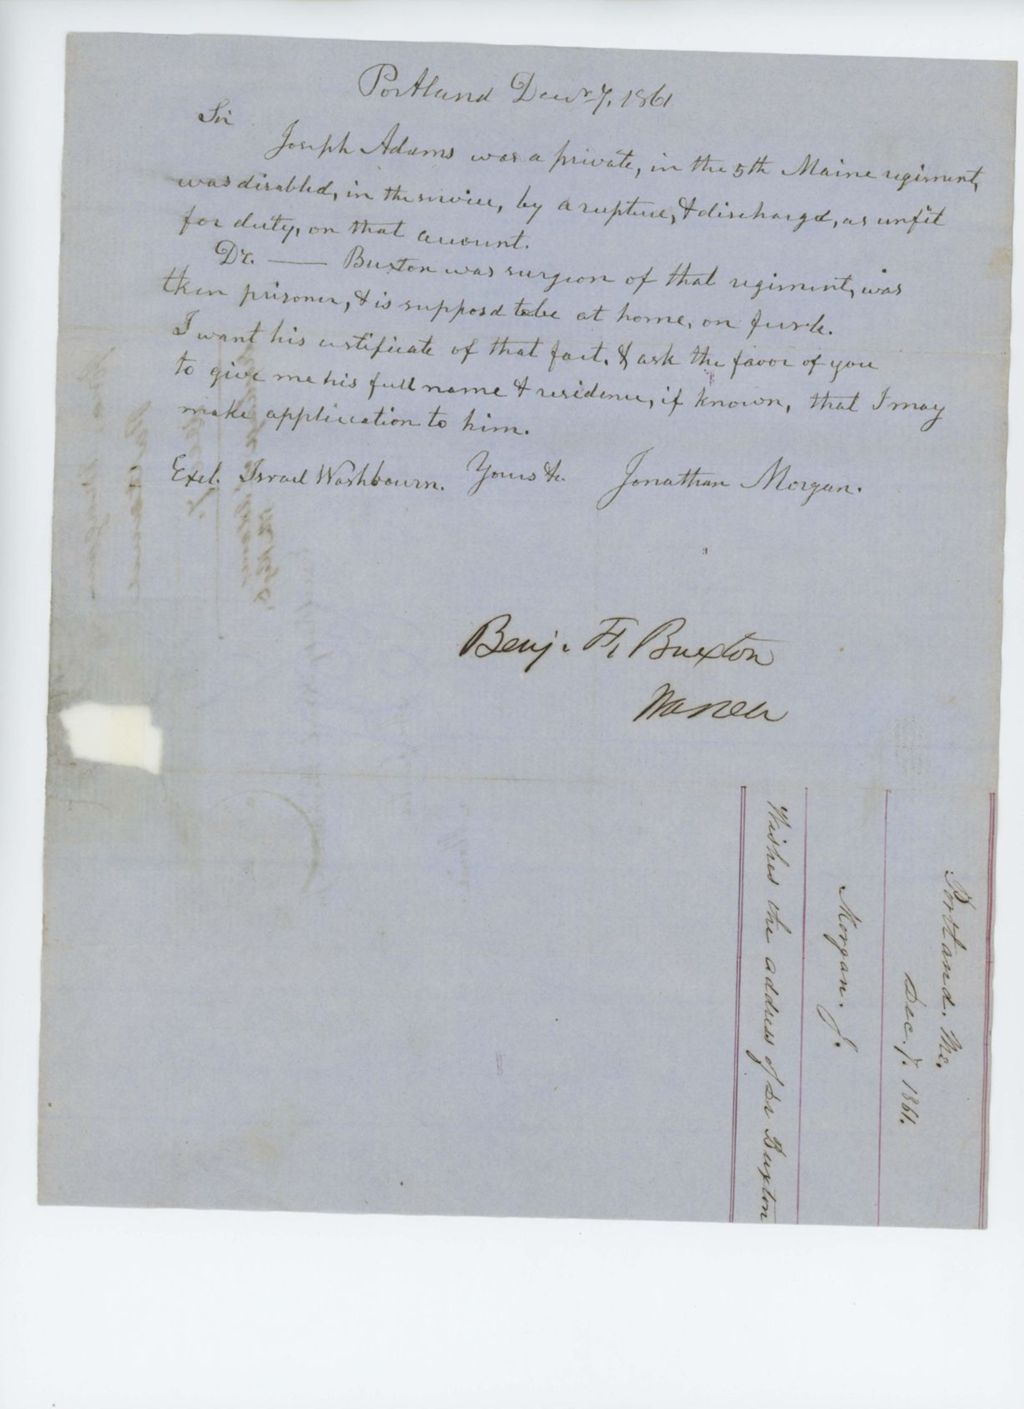 Portland Decr. 7, 1861
Sir
Joseph Adams was a private, in the 5th Maine regiment,
was disabled, in the service, by a rupture, & dischargd, as unfit
for duty, on that account.
Dr. —— Buxton was surgeon of that regiment, was
tken prisoner, & is supposd to be at home, on furlo.
I want his certificate of that fact. & ask the favor of you
to give me his full name & residence, if known, that I may
make application to him.
Exel. Israel Washbourn. Yours &c. Jonathan Morgan.
Benj. F. Buxton
Warren
Portland. Me.
Dec. 7. 1861.
Morgan. J.
Wishes the address of Dr Buxton